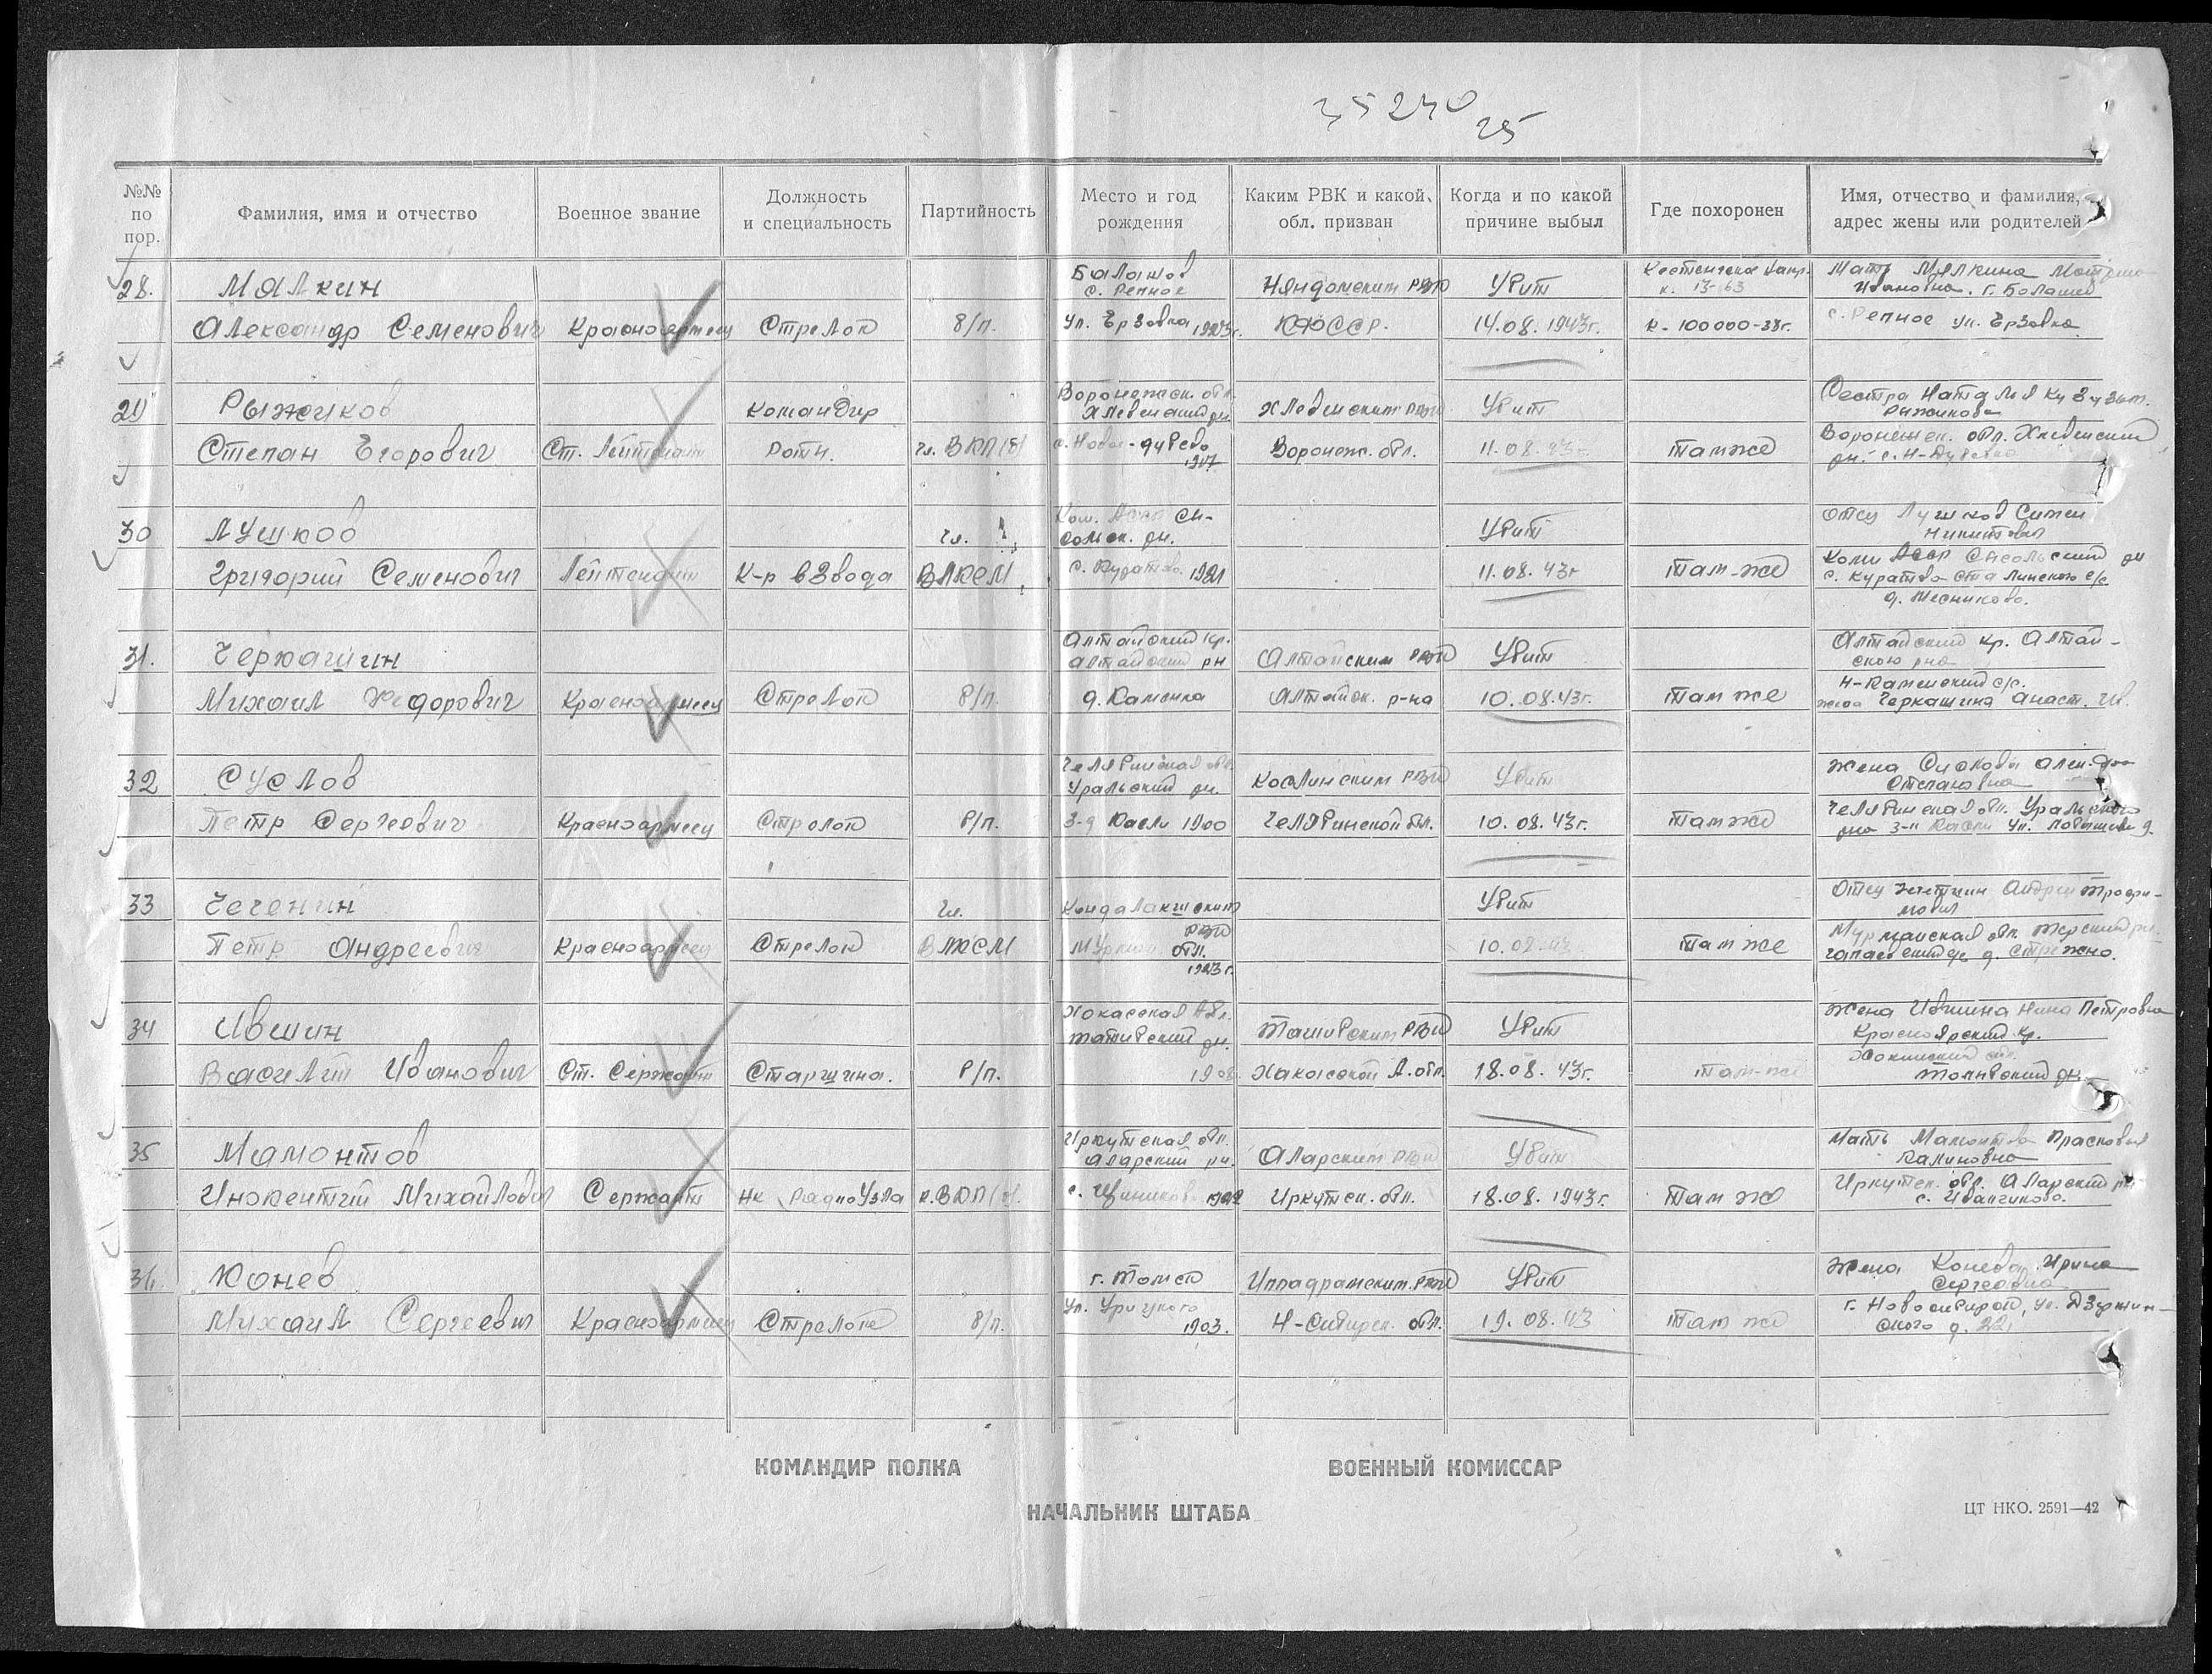 35240
25
№№ по пор.
Фамилия, имя и отчество
Военное звание
Должность и специальность
Партийность
Место и год рождения
Каким РВК и какой обл. призван
Когда и по какой причине выбыл
Где похоронен
Имя, отчество и фамилия, адрес жены или родителей
28. Мялкин Балашов с. Репное Няндомским РВК Убит к. 13-63 Мать Мялкина
Ивановна. г. Балашов
Александр Семенович Красноармеец Стрелок б/п. ул. Ерзовка 1923г. КФССР. 14.08.1943г. к-100000-38г. с. Репное ул. Ерзовка
29 Рыжуков Командир Воронежск. обл. Хлевенский рн. Хлевенским РВК Убит Сестра Наталия
Степан Егорович Ст. Лейтенант роты. чл. ВКП(б) 1917 Воронеж. обл. 11.08.43г. там же Воронежск. обл. Хлевенский
рн. с. Н-Дубово
30 Лушков чл. рн. Убит отец Лушков Семен
Никитович
Григорий Семенович Лейтенант К-р взвода ВЛКСМ с. Куратово. 1921 11.08.43г там-же Коми АССР Сысольский рн
с. Куратово
31. Черкашин Алтайский кр. алтайский рн Алтайским РВК Убит Алтайский кр. Алтай-
ского рна
Михаил Федорович Красноармеец Стрелок б/п. д. Каменка Алтайск. р-на 10.08.43г. там же Н-Каменский с/с.
жена Черкашина Анаст. Ив.
32 Суслов Челябинская обл. Уральский рн. Каслинским РВК Убит Жена
Степановна
Петр Сергеевич Красноармеец Стрелок б/п. З-д Касли 1900 Челябинской обл. 10.08.43г. там же Челябинская обл. Уральского
рна з-д Касли ул.
33 Чеченин чл. Кандалакшским РВК Убит Отец Андрей Трофи-
мович
Петр Андреевич Красноармеец Стрелок ВЛКСМ Мурман обл. 1923г. 10.08.43 там же Мурманская обл. Терский рн.
34 Ившин Хакасская А.обл. рн. РВК Убит Жена Ившина Нина Петровна
Красноярский кр.
Василий Иванович Ст. Сержант Старшина. б/п. 1908 Хакасской А.обл. 18.08.43г. там-же рн.
35 Мамонтов Иркутская обл. аларский рн. Аларским РВК Убит Мать Мамонтова Прасковья
Калиновна
Инокентий Михайлович Сержант нк радиоузла к. ВКП(б). 1922 Иркутск. обл. 18.08.1943г. там же Иркутск. обл. Аларский рн
36. Конев г. Томск РВК Убит Жена Конева Ирина
Сергеевна
Михаил Сергеевич Красноармеец Стрелок б/п. ул. Урицкого 1903. Н-Сибирск. обл. 19.08.43 там же г. Новосибирск, ул. Дзержин-
ского д. 22
КОМАНДИР ПОЛКА
ВОЕННЫЙ КОМИССАР
НАЧАЛЬНИК ШТАБА
ЦТ НКО. 2591—42